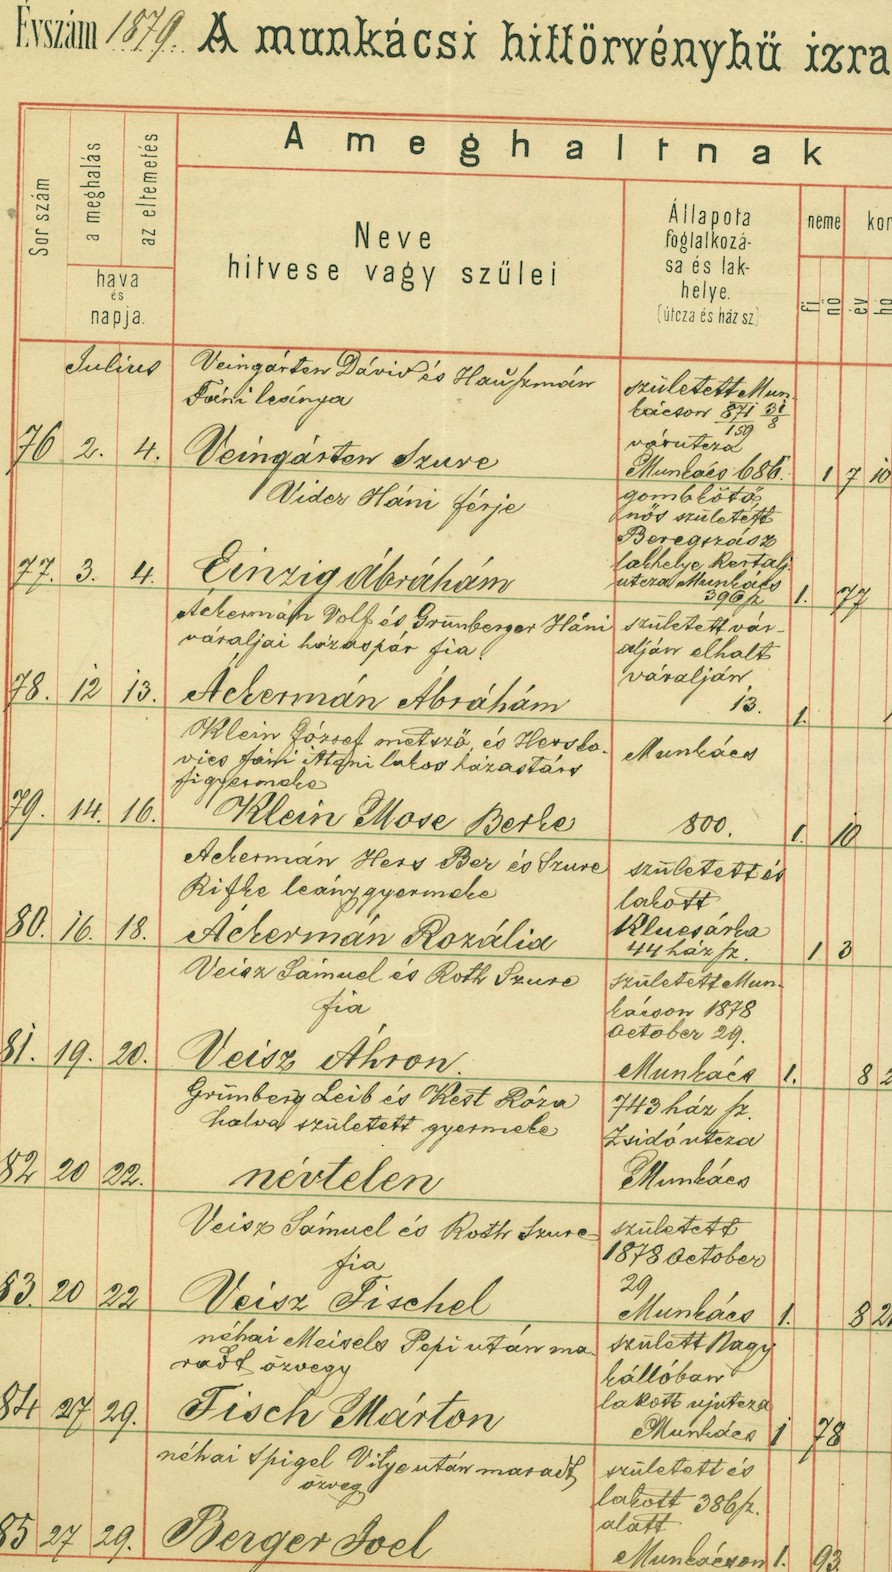 Évszám 1879. A munkácsi hittörvényhű izra
A meghaltnak
Sor szám
a meghalás
az eltemetés
hava
és
napja.
Neve
hitvese vagy szülei
Állapota
foglalkozá-
sa és lak-
helye.
(útcza és ház sz)
neme
kor
fi
nő
év
hó
Julius
Veingárten Dávid és Hauszmán
Fáni leánya
született Mun-
kácson 871 31/8
159
várutcza
76 2. 4. Veingárten Szure Munkács 686. 1 7 10
Videz Háni férje
gombkötő,
nős született
Beregszász
lakhelye Kertalj
utcza Munkács
77. 3. 4. Einzig Ábráhám 396 sz 1. 77
Áckermán Volf és Grünberger Háni
váraljai házaspár fia.
született vár-
alján elhalt
váralján
78. 12 13. Áckermán Ábráhám 13. 1.
Klein József metsző, és Hersko-
vics Fáni itteni lakos házastárs
figyermeke
Munkács
79. 14. 16. Klein Mose Berke 800. 1. 10
Ackermán Hers Ber és Szure
Rifke leánygyermeke
született és
lakott
Klucsárka
80. 16. 18. Áckermán Rozália 44 ház sz. 1 3
Veisz Sámuel és Roth Szure
fia
született Mun-
kácson 1878
October 29.
81. 19. 20. Veisz Áhron. Munkács 1. 8 2
Grünberg Leib és Kest Róza
halva született gyermeke
743 ház sz.
Zsidó utcza
82 20 22. névtelen Munkács
Veisz Sámuel és Roth Szure
fia
született
1878 October
29
83. 20 22 Veisz Fischel Munkács 1. 8 2
néhai Meisels Pepi után ma-
radt özvegy
születt Nagy
kállóban
lakott ujutcza
84 27 29. Fisch Márton Munkács 1 78
néhai Spigel Vitye után maradt
özvegy
született és
lakott 386 sz.
alatt
85 27 29. Berger Joel Munkácson 1. 93